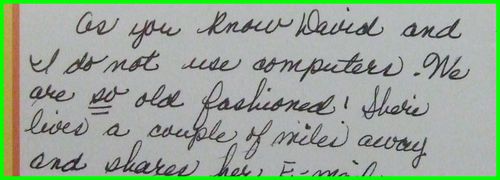 As you know David and
I do not use computers. We
are so old fashioned! Sheri
lives a couple of miles away
and shares her E-mail